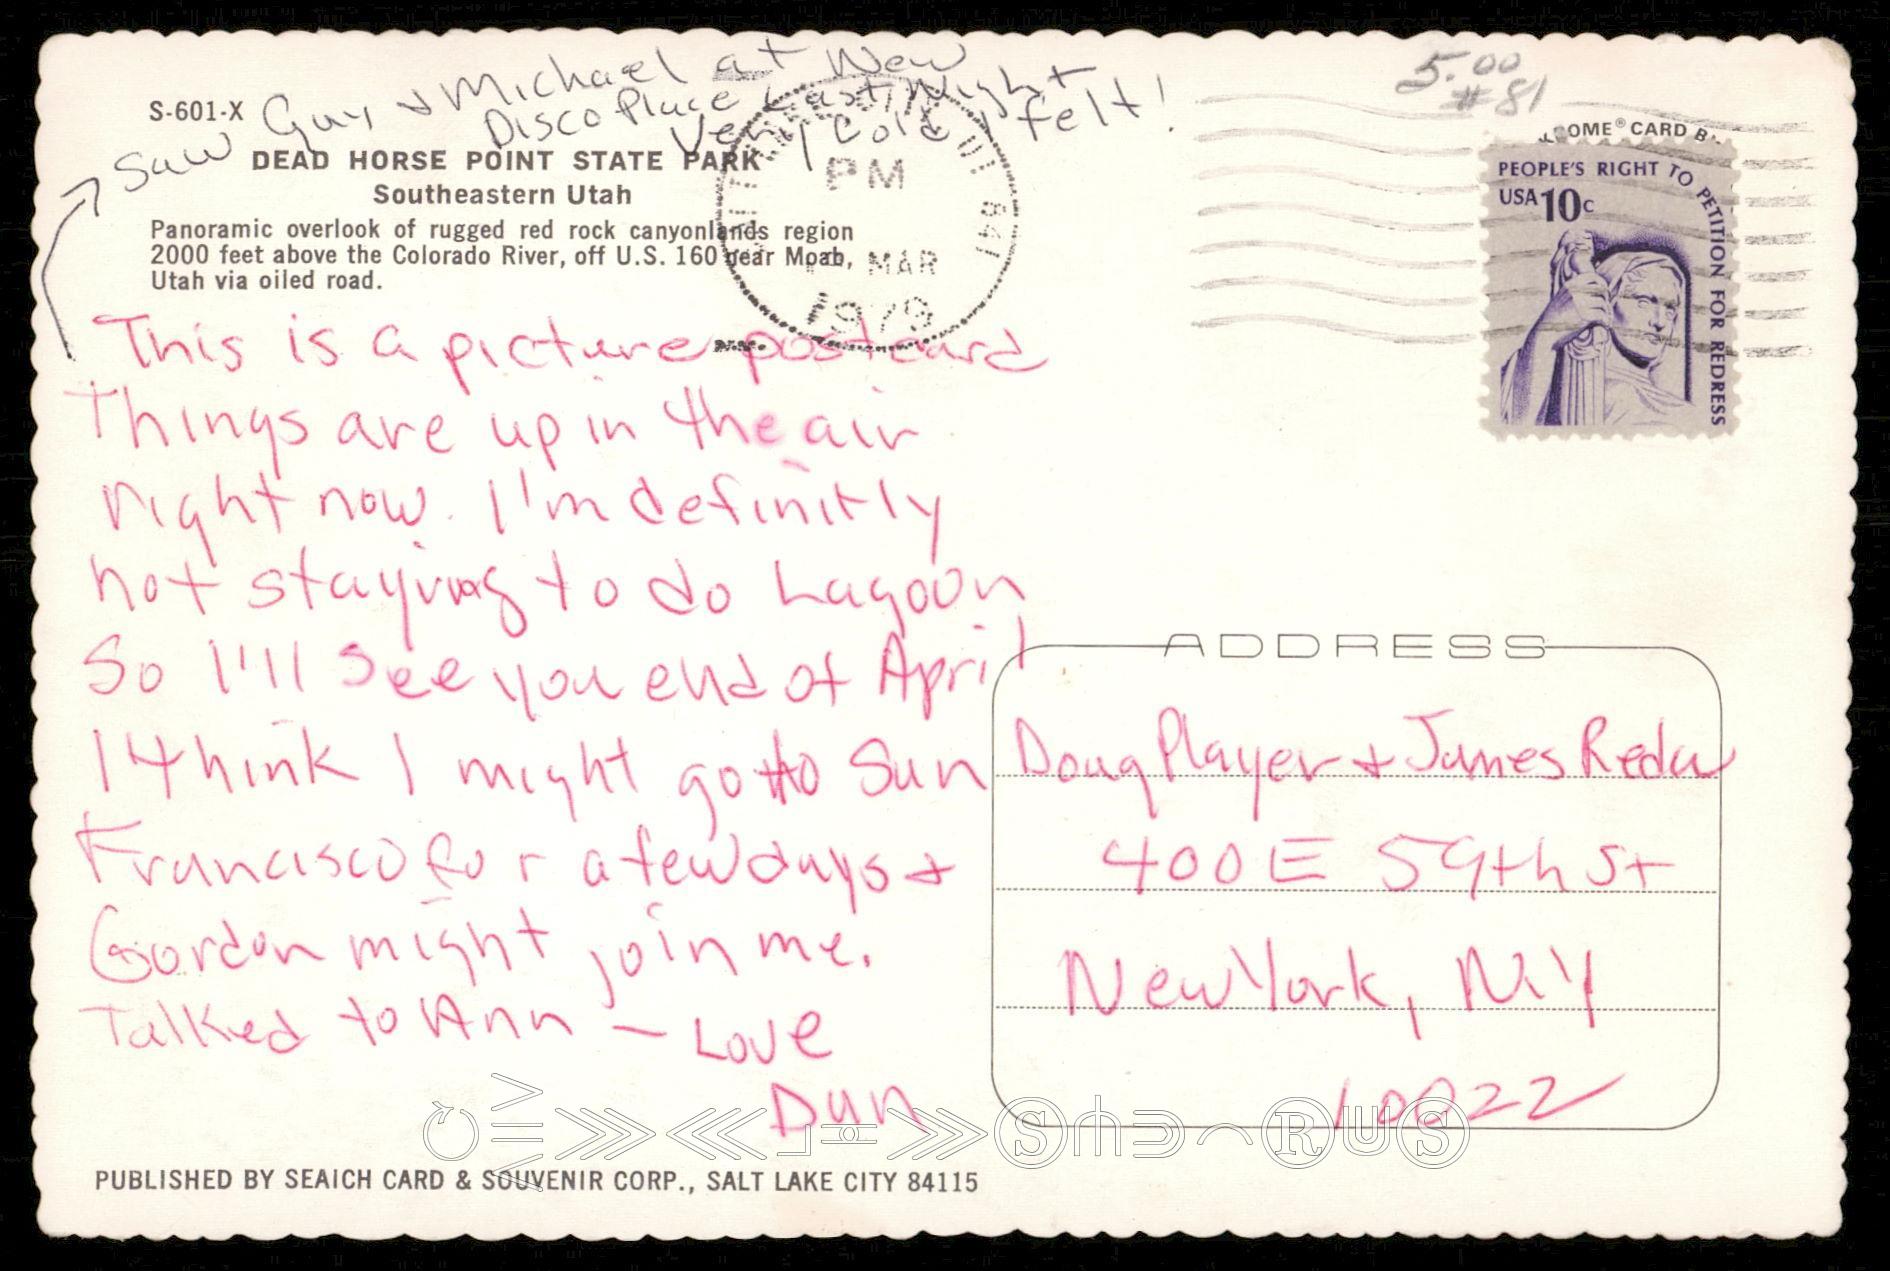 5.00
#81
Saw Guy & Michael at New
Disco Place Last Night
Very Cold I felt!
S-601-X
DEAD HORSE POINT STATE PARK
Southeastern Utah
Panoramic overlook of rugged red rock canyonlands region
2000 feet above the Colorado River, off U.S. 160 near Moab,
Utah via oiled road.
PM
MAR
1979
UT 841
CARD
PEOPLE'S RIGHT TO PETITION FOR REDRESS
USA 10c
This is a picture postcard
Things are up in the air
right now. I'm definitly
not staying to do Lagoon
So I'll see you end of April
I think I might go to San
Francisco for a few days &
Gordon might join me.
Talked to Ann – Love
Dan
ADDRESS
Doug Player & James Reda
400 E 59th St
New York, NY
10022
PUBLISHED BY SEAICH CARD & SOUVENIR CORP., SALT LAKE CITY 84115